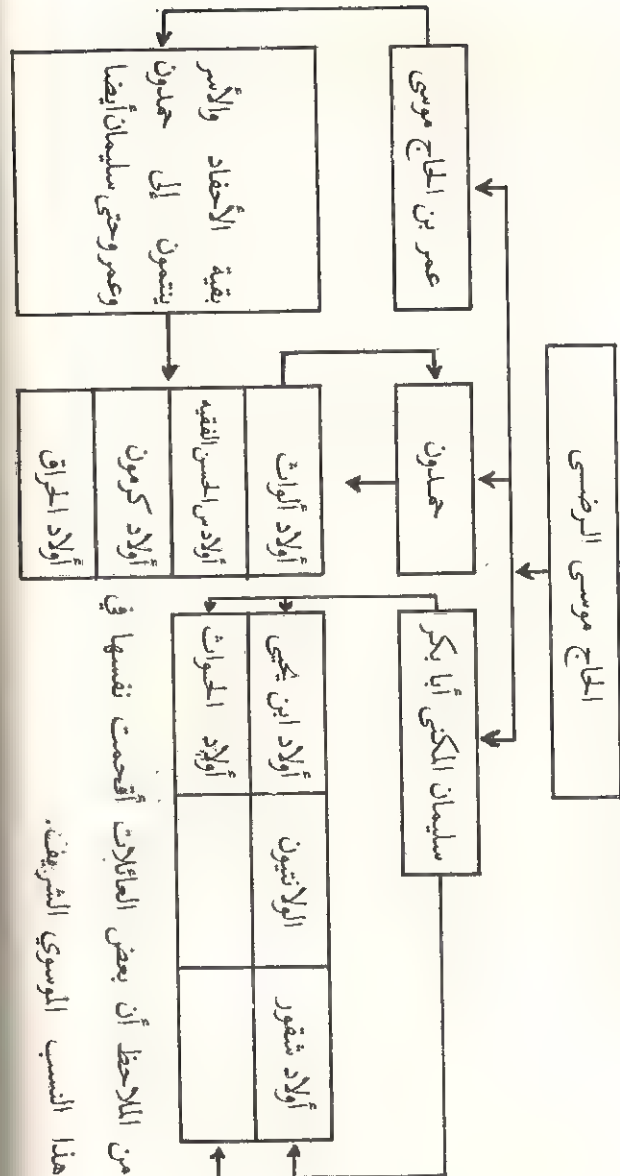 الحاج موسى الرضى
عمر بن الحاج موسى
حمدون
سليمان المكنى أبا بكر
بقية الأحفاد والأسر
ينتمون إلى حمدون
وعمر وحتى سليمان أيضا
أولاد ألواث
أولاد س الحسن الفقيه
أولاد كرمون
أولاد الحراق
أولاد ابن يحيى
الولانتيون
أولاد شقور
أولاد الحواث
من الملاحظ أن بعض العائلات أقحمت نفسها في
هذا النسب الموسوي الشريف.